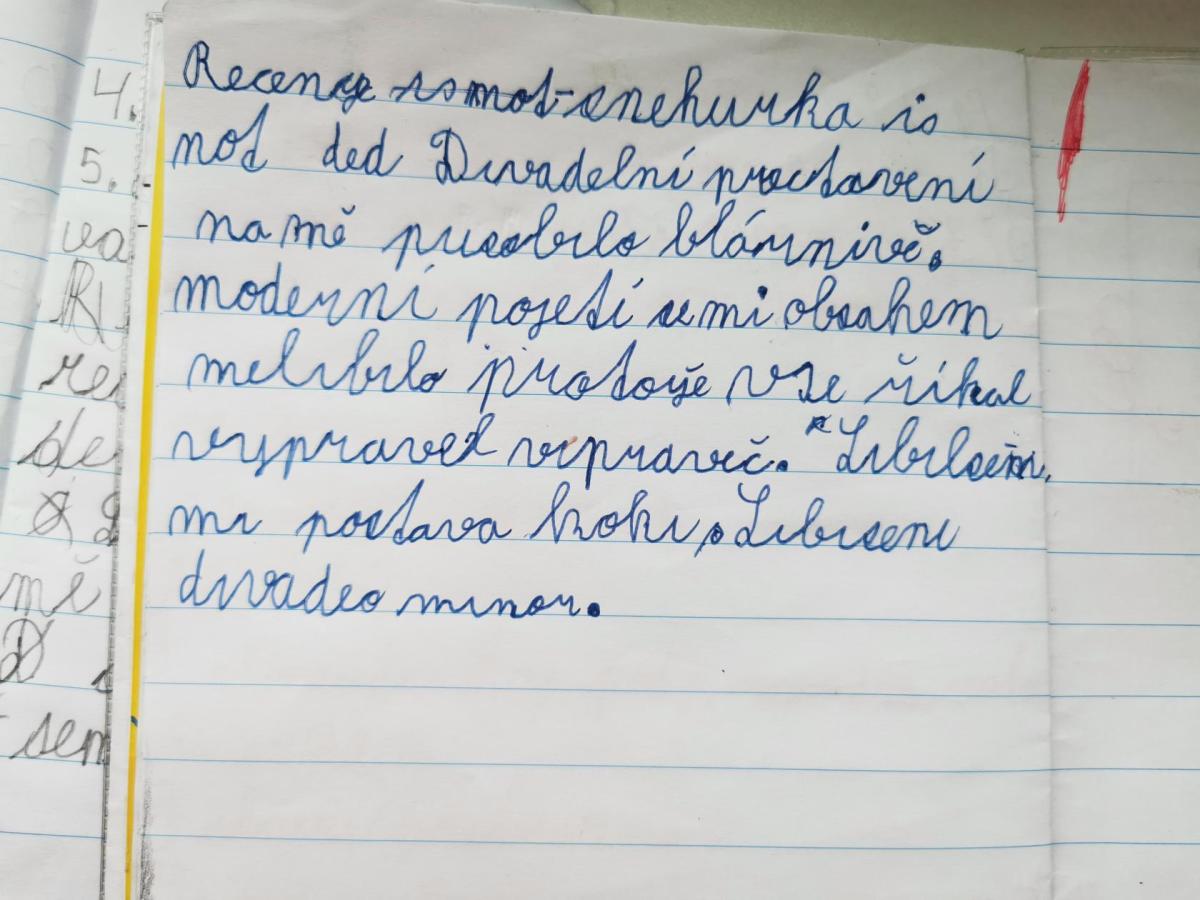 4.
5.
va
re
de
mě
D
sem
Recenze is not-snehurka is
not ded Divadelní prectavení
na mě pusobilo bláznivě.
moderní pojetí semi obsahem
melibilo protože vše říkal
vypraveč vipraveč. Libilosem
mi postava koki. Libiseni
divadeo minor.